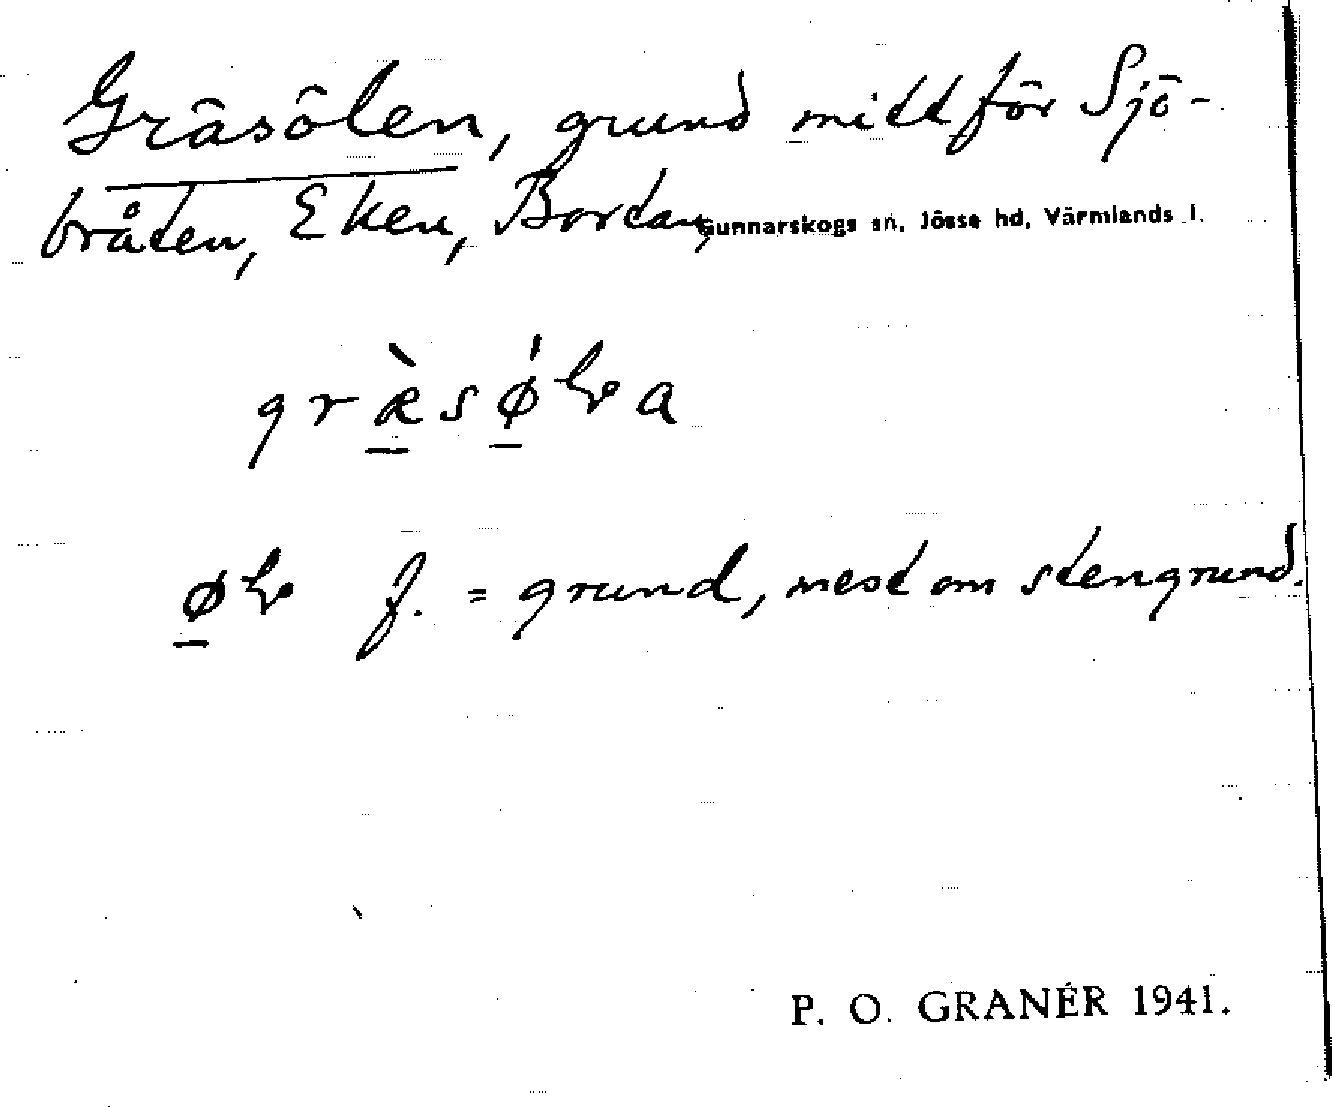 Gräsölen, grund mitt för Sjö-
bråten, Eken, Bortan, Gunnarskogs sn, Jösse hd, Värmlands l.
f. = grund, mest om stengrund.
P. O. GRANÉR 1941.